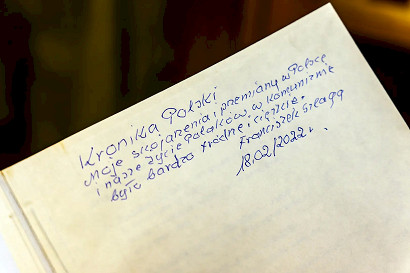 Kronika Polski
Moje skojarzenia i przemiany w Polsce
i nasze życie Polaków w komunizmie
było bardzo trudne i ciężkie.
Franciszek Szlaga
18.02/2022 r.